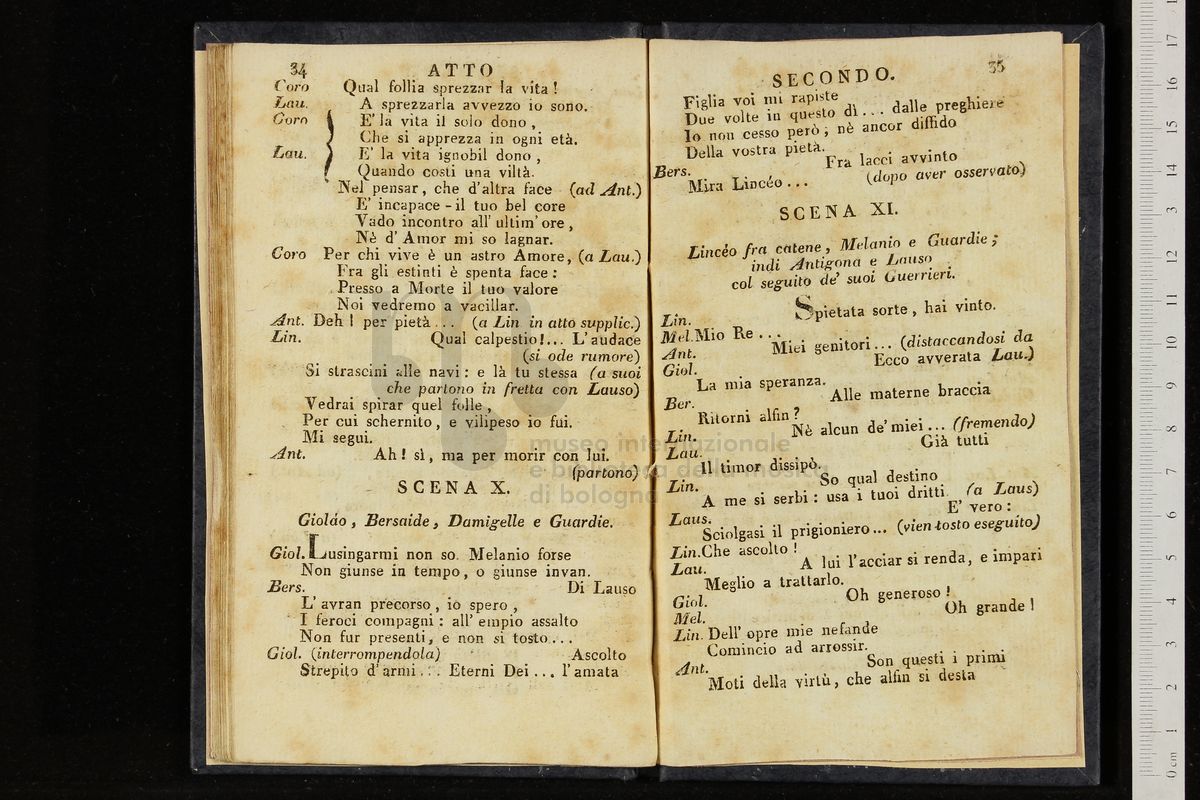 34
ATTO
Coro Qual follia sprezzar la vita !
Lau. A sprezzarla avvezzo io sono.
Coro E' la vita il solo dono ,
Che si apprezza in ogni età.
Lau. E' la vita ignobil dono ,
Quando costi una viltà.
Nel pensar, che d'altra face (ad Ant.)
E' incapace - il tuo bel core
Vado incontro all' ultim' ore ,
Nè d' Amor mi so lagnar.
Coro Per chi vive è un astro Amore, (a Lau.)
Fra gli estinti è spenta face :
Presso a Morte il tuo valore
Noi vedremo a vacillar.
Ant. Deh ! per pietà ... (a Lin in atto supplic.)
Lin. Qual calpestio!... L'audace
(si ode rumore)
Si strascini alle navi : e là tu stessa (a suoi
che partono in fretta con Lauso)
Vedrai spirar quel folle ,
Per cui schernito , e vilipeso io fui.
Mi segui.
Ant. Ah ! sì , ma per morir con lui.
(partono)
SCENA X.
Gioláo , Bersaide , Damigelle e Guardie.
Giol. Lusingarmi non so. Melanio forse
Non giunse in tempo, o giunse invan.
Bers. Di Lauso
L' avran precorso , io spero ,
I feroci compagni : all' empio assalto
Non fur presenti, e non sì tosto ...
Giol. (interrompendola) Ascolto
Strepito d'armi ... Eterni Dei ... l'amata
SECONDO.
35
Figlia voi mi rapiste
Due volte in questo dì ... dalle preghiere
Io non cesso però ; nè ancor diffido
Della vostra pietà.
Bers. Fra lacci avvinto
Mira Lincéo ... (dopo aver osservato)
SCENA XI.
Lincéo fra catene , Melanio e Guardie ;
indi Antigona e Lauso
col seguito de' suoi Guerrieri.
Lin. Spietata sorte , hai vinto.
Mel. Mio Re ...
Ant. Miei genitori ... (distaccandosi da
Giol. Ecco avverata Lau.)
La mia speranza.
Ber. Alle materne braccia
Ritorni alfin ?
Lin. Nè alcun de' miei ... (fremendo)
Lau. Già tutti
Il timor dissipò.
Lin. So qual destino
A me si serbi : usa i tuoi dritti. (a Laus)
Laus. E' vero :
Sciolgasi il prigioniero ... (vien tosto eseguito)
Lin. Che ascolto !
Lau. A lui l'acciar si renda, e impari
Meglio a trattarlo.
Giol. Oh generoso !
Mel. Oh grande !
Lin. Dell' opre mie nefande
Comincio ad arrossir.
Ant. Son questi i primi
Moti della virtù , che alfin si desta
museo internazionale
e biblioteca della musica
di bologna
0 cm 1 2 3 4 5 6 7 8 9 10 11 12 13 14 15 16 17